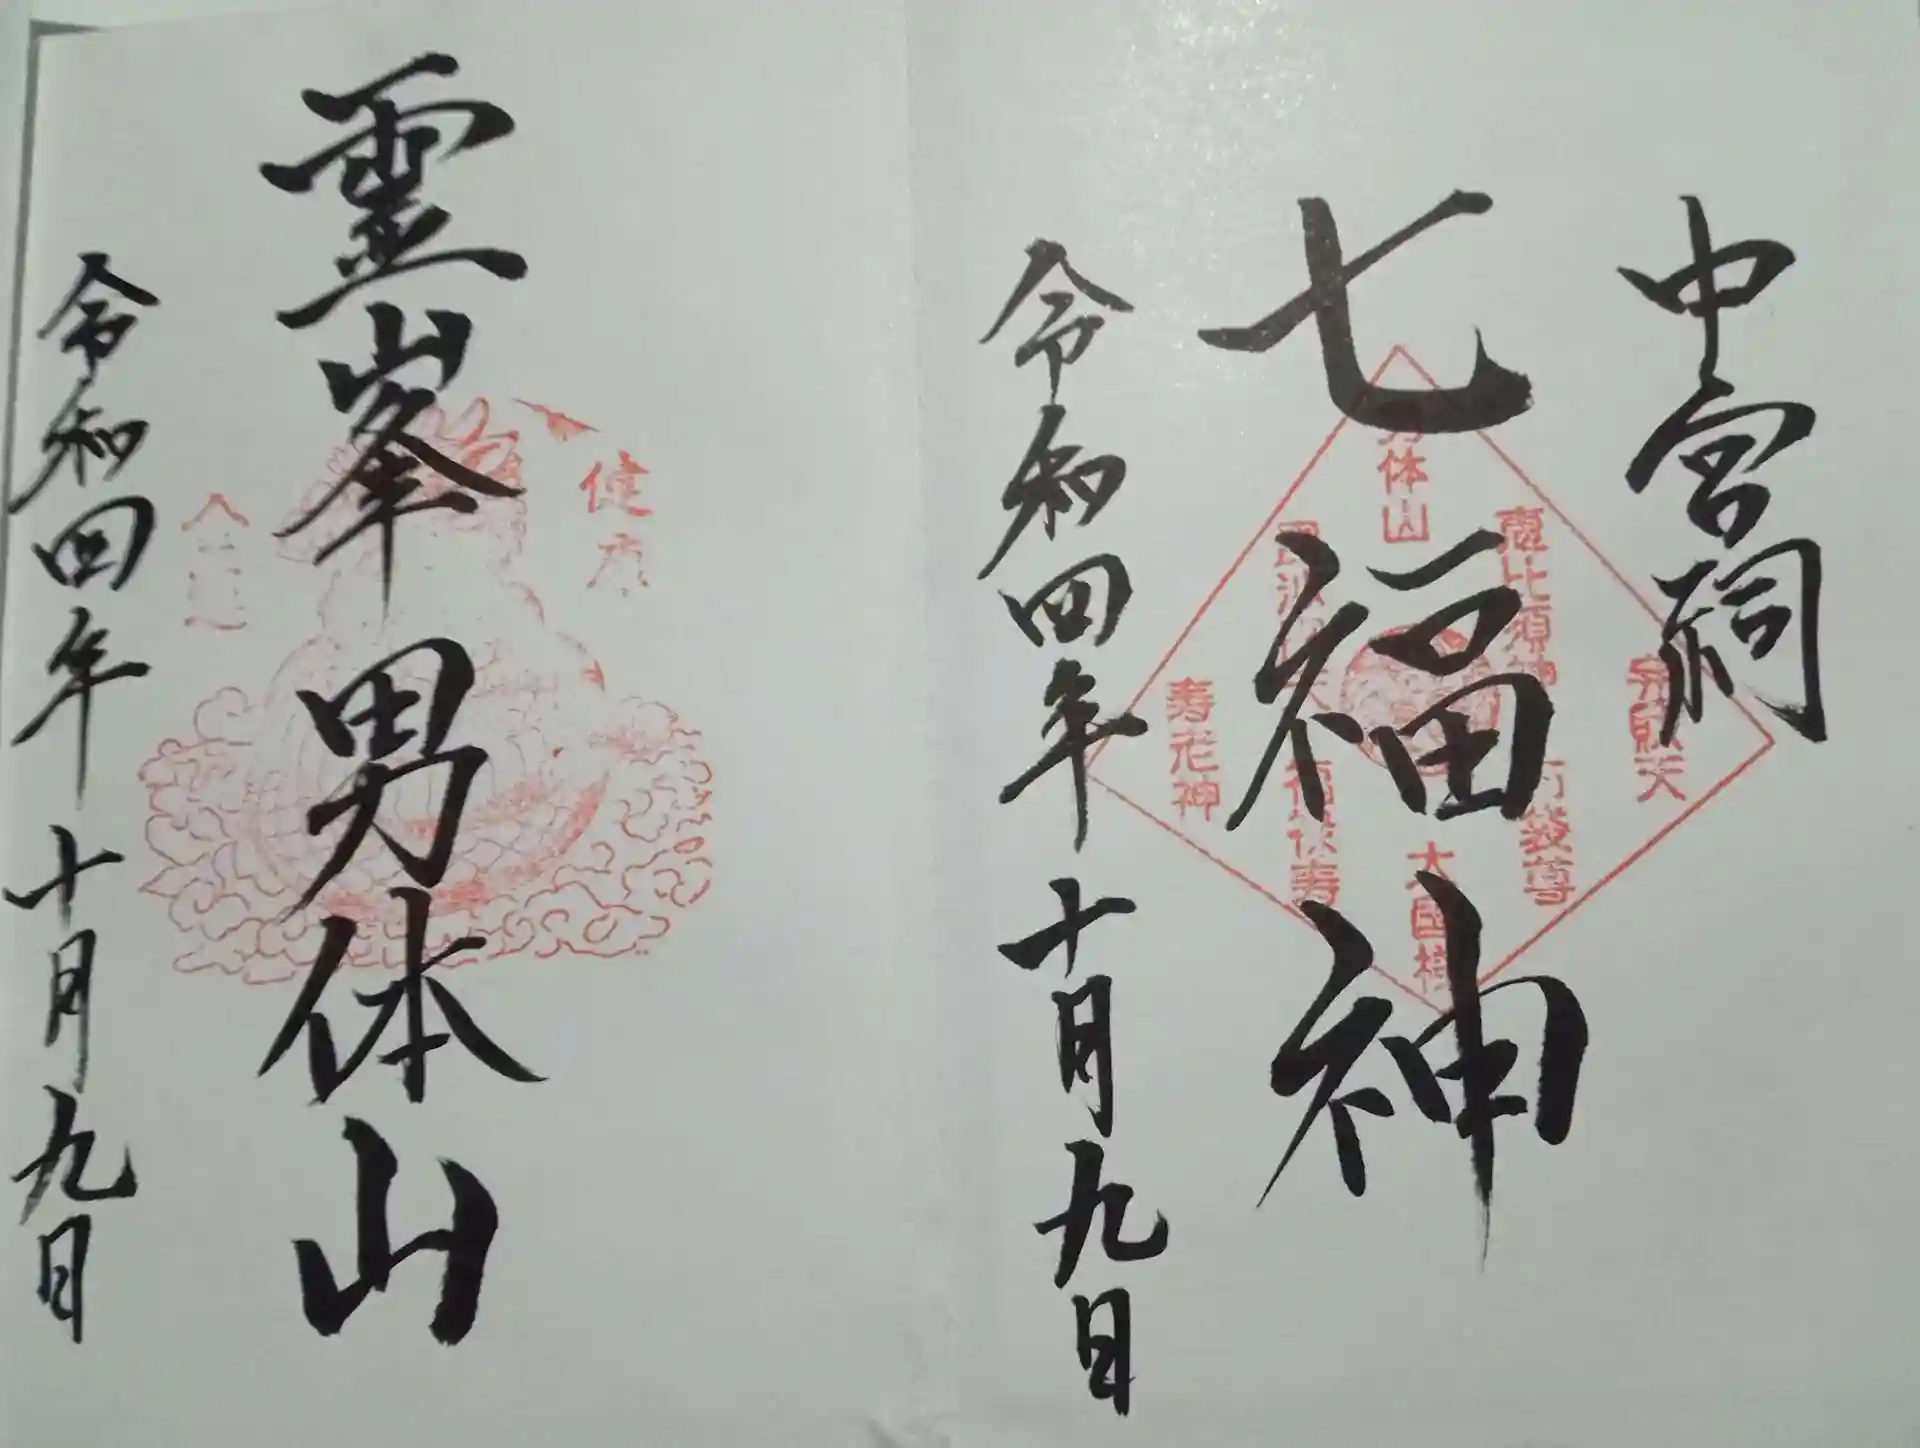 中宮祠
七福神
男体山
恵比須神
弁財天
布袋尊
大国様
寿老神
令和四年十月九日
健康
霊峯男体山
令和四年十月九日